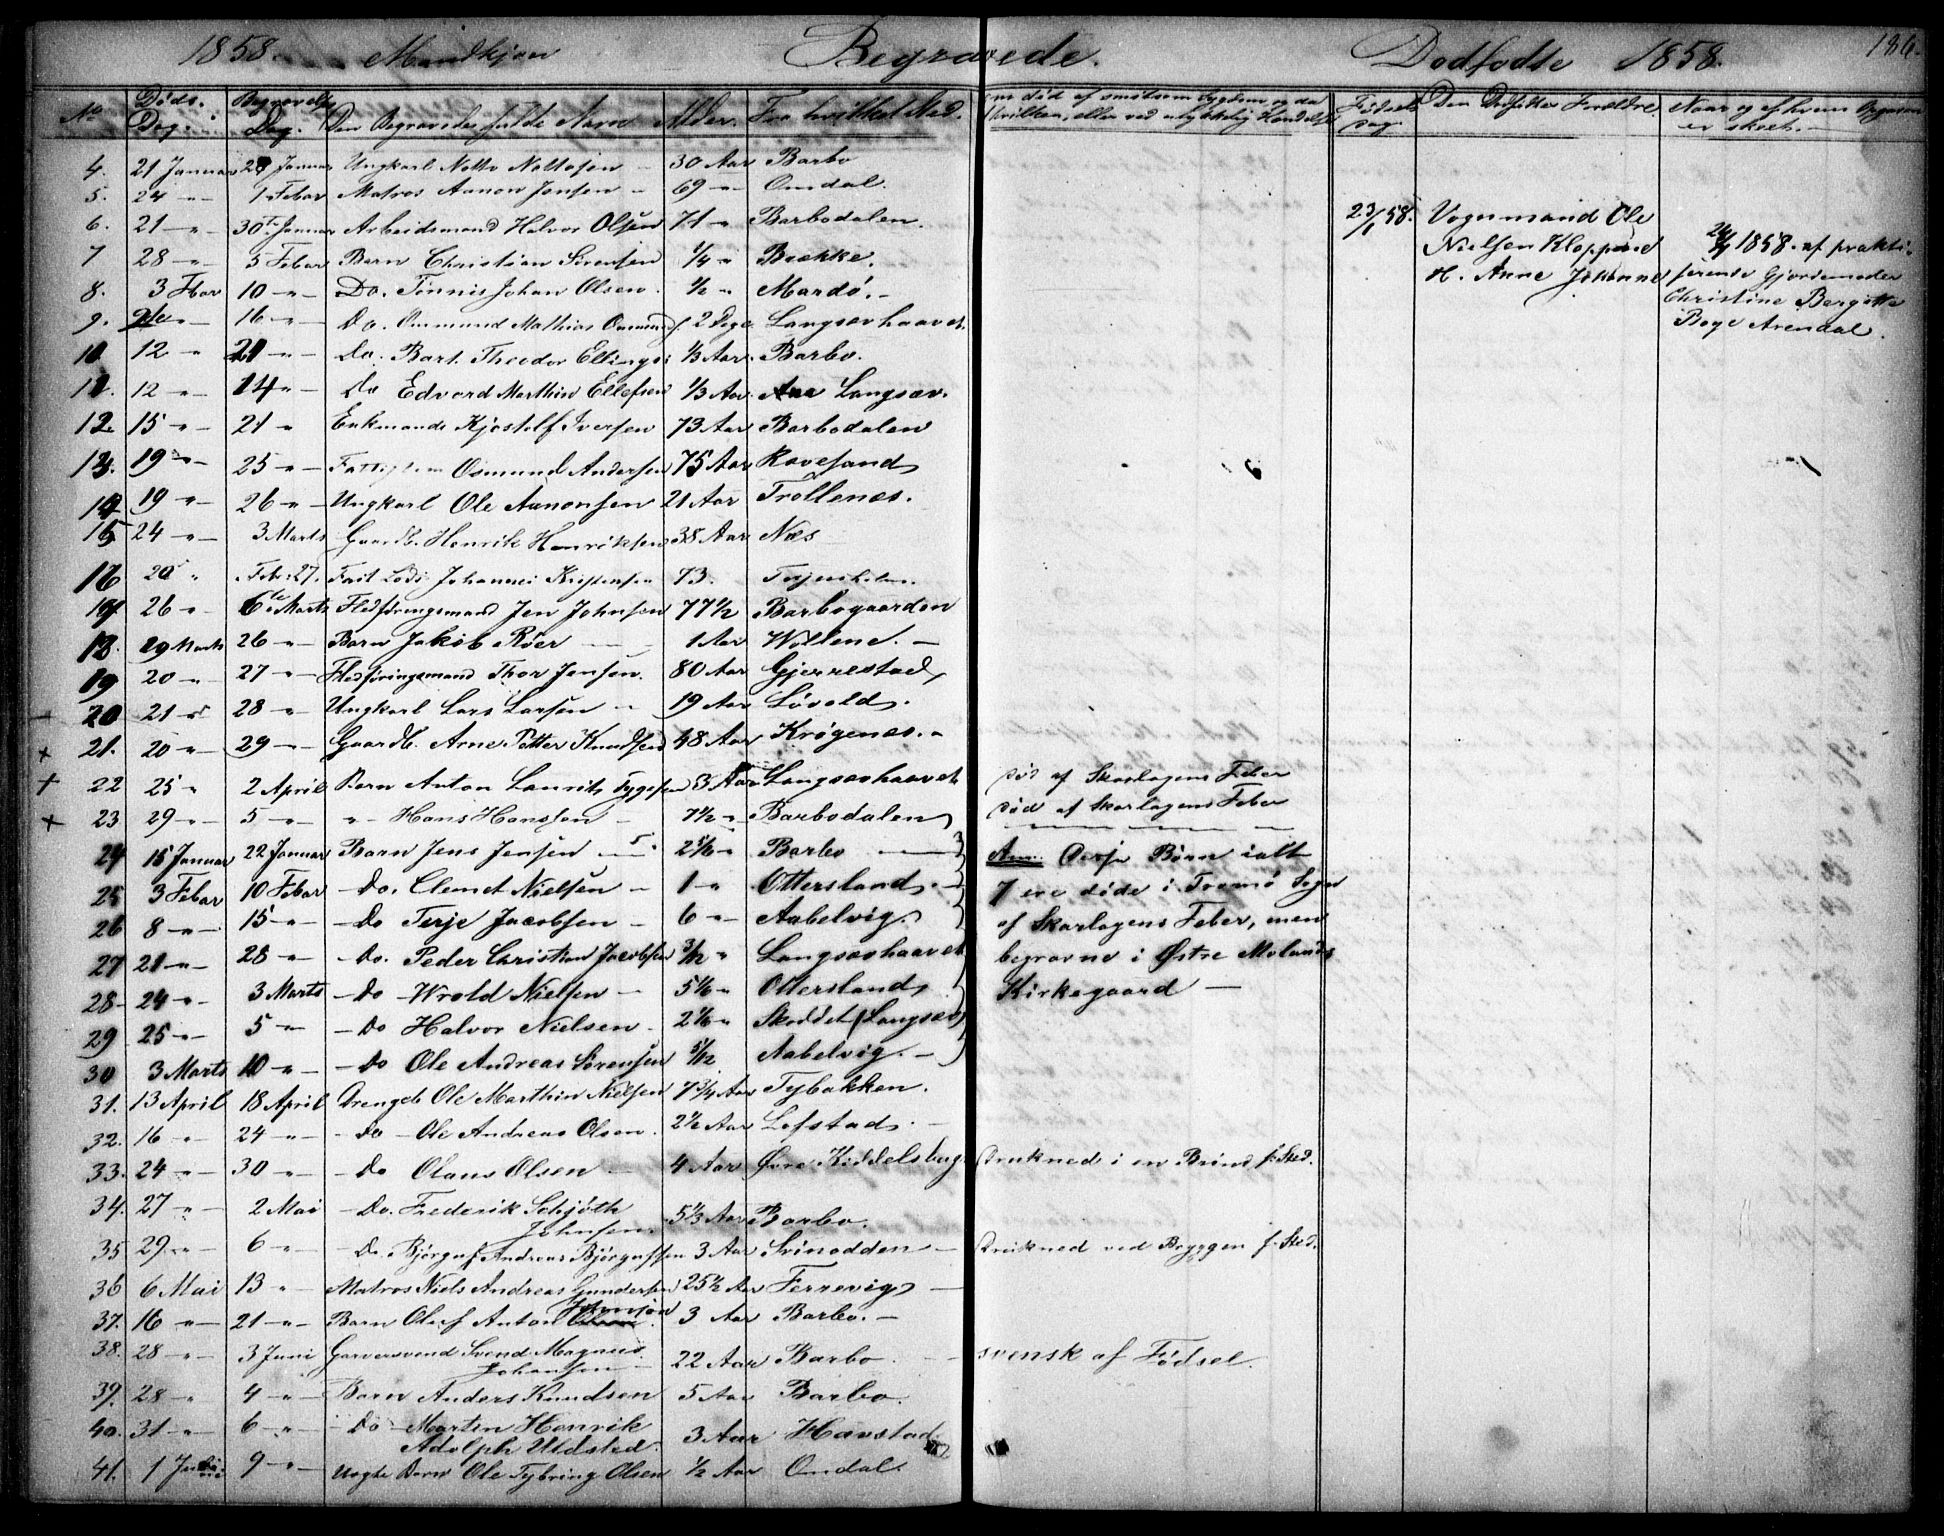 1858. Mandkjøn Begravede. Dødfødte 1858. 186.
No Døds. Dag. Begravelses Dag. Den Begravedes fulde Navn Alder. Fra hvilket Sted. om død af smitsom Sygdom og da hvilken, eller ved ulykkelig Hændelse Fødsels Dag Den Dødfødtes Forældre. Naar og af hvem er skeet.
4. 21 Januar 28 Januar Ungkarl Notto Nottosen — 30 Aar Barbo
5. 24 -"- 1 Febar Matros Aanon Jensen - 69 -"- Omdal.
6. 21 -"- 30te Januar Arbeidsmand Halvor Olsen 71 -"- Barbodalen.
7 28 -"- 5 Febar Barn Christian Sørensen 1/4 " Brække.
8. 3 Fbar 10 -"- Do. Tønnis Johan Olsen. 1/2 " Mardø. -
9. -"- 16 -"- Do. Ommund Mathias 2 Dage Langsævhaavet.
10. 12 " 21 -"- Do. Bart. Theodor Ellings. 1/3 Aar. Barbo.
11. 12 -"- 14 "- Do Edvard Marthin Ellefsen 1/3 Aar. Langsæv.
12. 15 -"- 21 " Enkemand Kjøstolf Iversen 73 Aar Barbodalen
13. 19 -"- 25 -"- Osmund Andersen 75 Aar Ravesand
14 19 " 26 -"- Ungkarl Ole Aanonsen 21 Aar Trollenæs.
15 24 -"- 3 Marts Gaardb. Henrik Henriksen 38 Aar Næs
16 20 " Febr: 27. Johannes Kristensen 73.
17 26 " 6te Marts Flodføringsmand Jen Johnsen 77 1/2 Barbogaarden
18. 19 Marts 26 -"- Barn Jakob Röer — 1 Aar Wollene. -
19 20 -"- 27 -"- Flodføringsmand Thor Jensen. 80 Aar Gjerrestad
20 21 28 -"- Ungkarl Lars Larsen - 19 Aar Løvold.
+ 21. 20 -"- 29 -"- Gaardb. Arne Petter Knudsen 48 Aar Krøgenes. -
+ 22 25 " 2 April Barn Anton Laurits Tygesen 3 Aar Langsævhaavet død af Skarlagens Feber
+ 23 29 -"- 5 -"- -"- Hans Hansen - 7 1/2 " Barbodalen død af Skarlagens Feber
24 15 Januar 22 Januar Barn Jens Jensen — 2 5/6 " Barbo — Anm: Disse Børn ialt
25 3 Febar 10 Febar - Do. Clemet Nielsen - 1 -"- Ottersland. - 7 ere døde i Tromø Sogn
26 8 -"- 15 -"- - Do Terje Jacobsen - 6 -"- Aabelvig. af Skarlagens Feber, men
27 21 -"- 28 -"- - Do. Peder Christian Jacobsen 3/12 " Langsævhaavet begravne i Østre Molands
28 - 24 -"- 3 Marts - Do - Wrold Nielsen - 5 1/6 " Ottersland Kirkegaard —
29 25 -"- 5 -"- - Do Halvor Nielsen - 2 1/6 " Skoddet (Langsæv)
30 3 Marts 10 -"- - Do Ole Andreas Sørensen 5/12 Aabelvig. -
31. 13 April 18 April Drengeb Ole Marthin Nielsen 7 3/4 Aar Tybakken.
32. 16 -"- 24 -"- - Do - Ole Andreas Olsen. 2 1/2 Aar Lofstad. -
33. 24 -"- 30 -"- - Do Olaus Olsen - 4 Aar Øvre Kiddelsbug. drukned i en Brønd f. Sted.
34. 27 -"- 2 Mai - Do. Frederik Schjøth
Johnsen. 5 1/3 Aar Barbo.
35 29 -"- 6 -"- - Do. Bjørguf Andreas Bjørgufsen 3 Aar Svinodden - druknet ved Bryggen f. Sted.
36 6 Mai 13 " Matros Niels Andreas Gundersen 25 1/2 Aar Ferrevig —
37. 16 -"- 21 -"- Barn Oluf Anton Johnsen 3 Aar Barbo. -
38. 28 -"- 3 Juni Garversvend Svend Magnus
Johansen - 22 Aar Barbo. svensk af Fødsel.
39. 28 -"- 4 -"- Barn Anders Knudsen 5 Aar Barbo.
40. 31 -"- 6 -"- - Do - Martin Henrik
Adolph Uldsted. 3 Aar Havstad.
41. 1 Juni 9 -"- Uægte Barn Ole Tybring Olsen 1/2 Aar Omdal.
23/1 58. Vognmand Ole
Nielsen Kloppene
H. Anne Johanne
1858. af prakti-
serende Gjordemoder
Christine Bergitte
Boye Arendal.